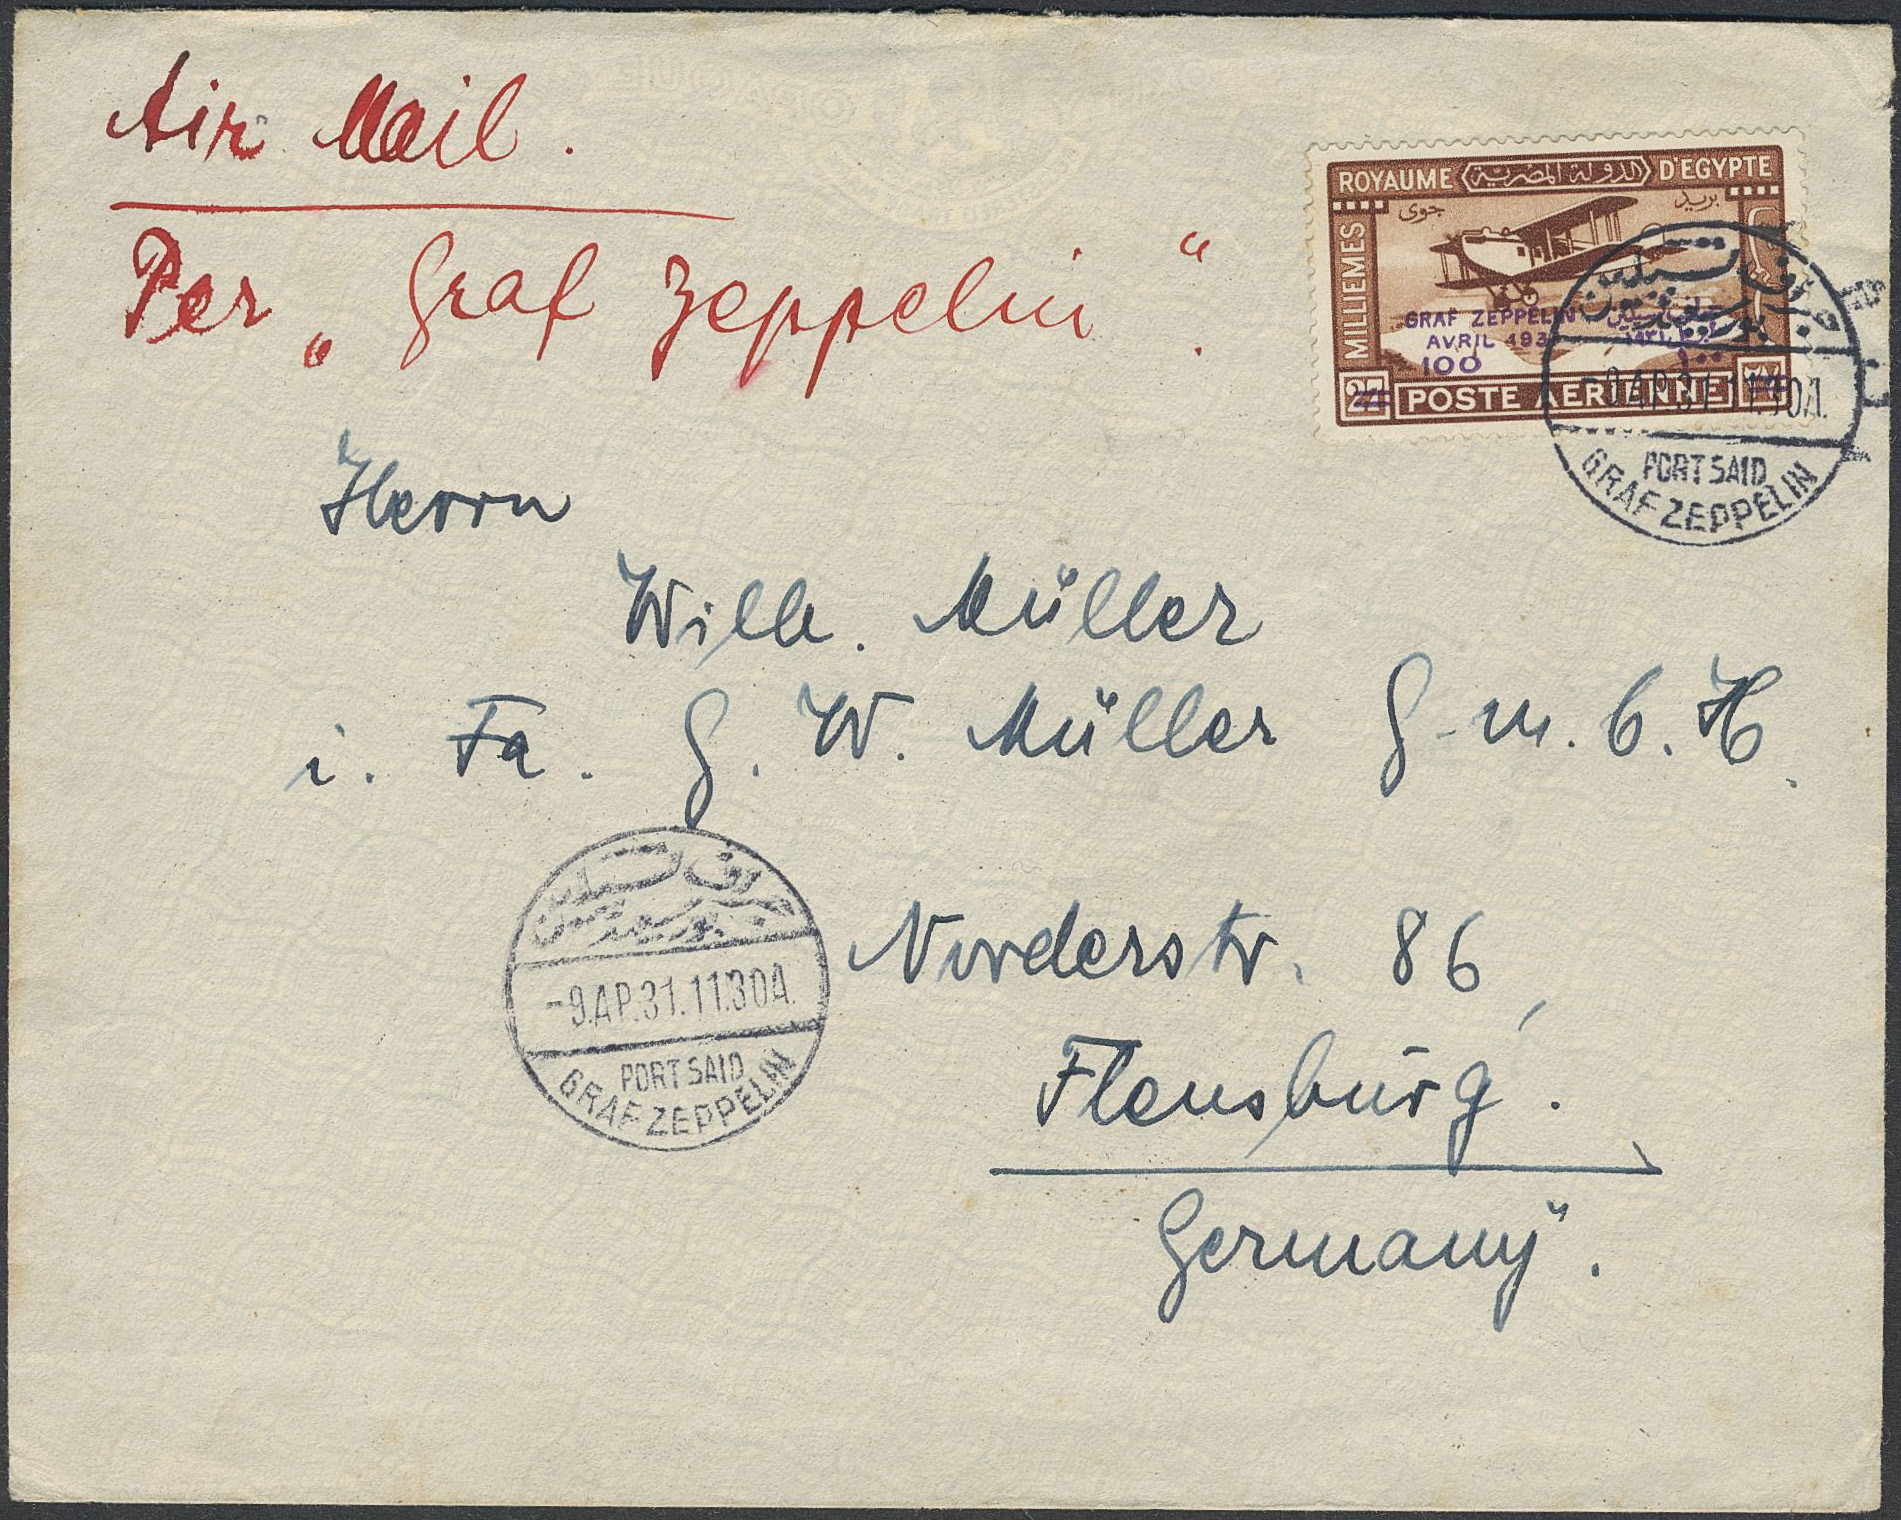 Air Mail.
Per „Graf Zeppelin“.
ROYAUME الدولة المصرية D'EGYPTE
بريد جوى
MILLIEMES
GRAF ZEPPELIN
AVRIL 1931 ١٩٣١
100 ١٠٠
27 POSTE AERIENNE ٢٧
-9.AP.31.11.30A.
PORT SAID
GRAF ZEPPELIN
Herrn
Wilh. Müller
i. Fa. G. W. Müller G.m.b.H.
بور سعيد
-9.AP.31.11.30A.
PORT SAID
GRAF ZEPPELIN
Norderstr. 86,
Flensburg.
Germany.